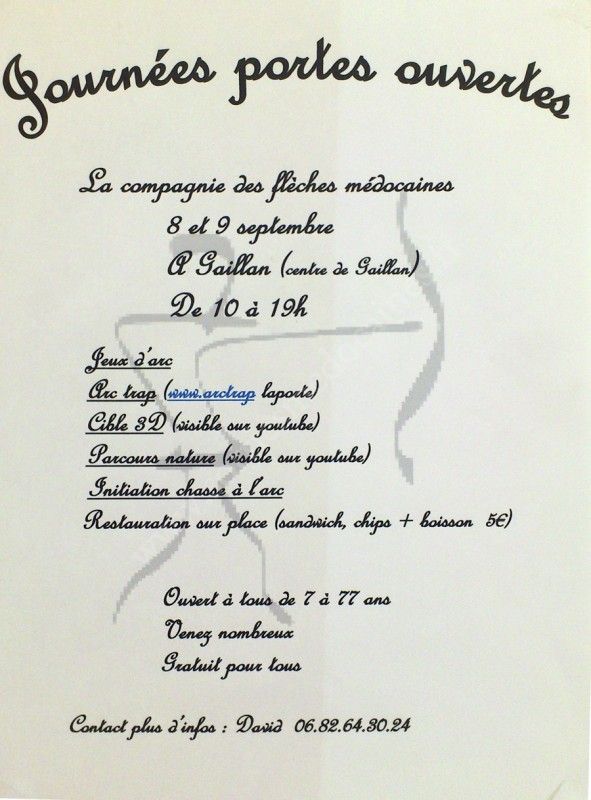 Journées portes ouvertes
La compagnie des flèches médocaines
8 et 9 septembre
A Gaillan (centre de Gaillan)
De 10 à 19h
Jeux d'arc
Arc trap (www.arctrap laporte)
Cible 3D (visible sur youtube)
Parcours nature (visible sur youtube)
Initiation chasse à l'arc
Restauration sur place (sandwich, chips + boisson 5€)
Ouvert à tous de 7 à 77 ans
Venez nombreux
Gratuit pour tous
Contact plus d'infos : David 06.82.64.30.24